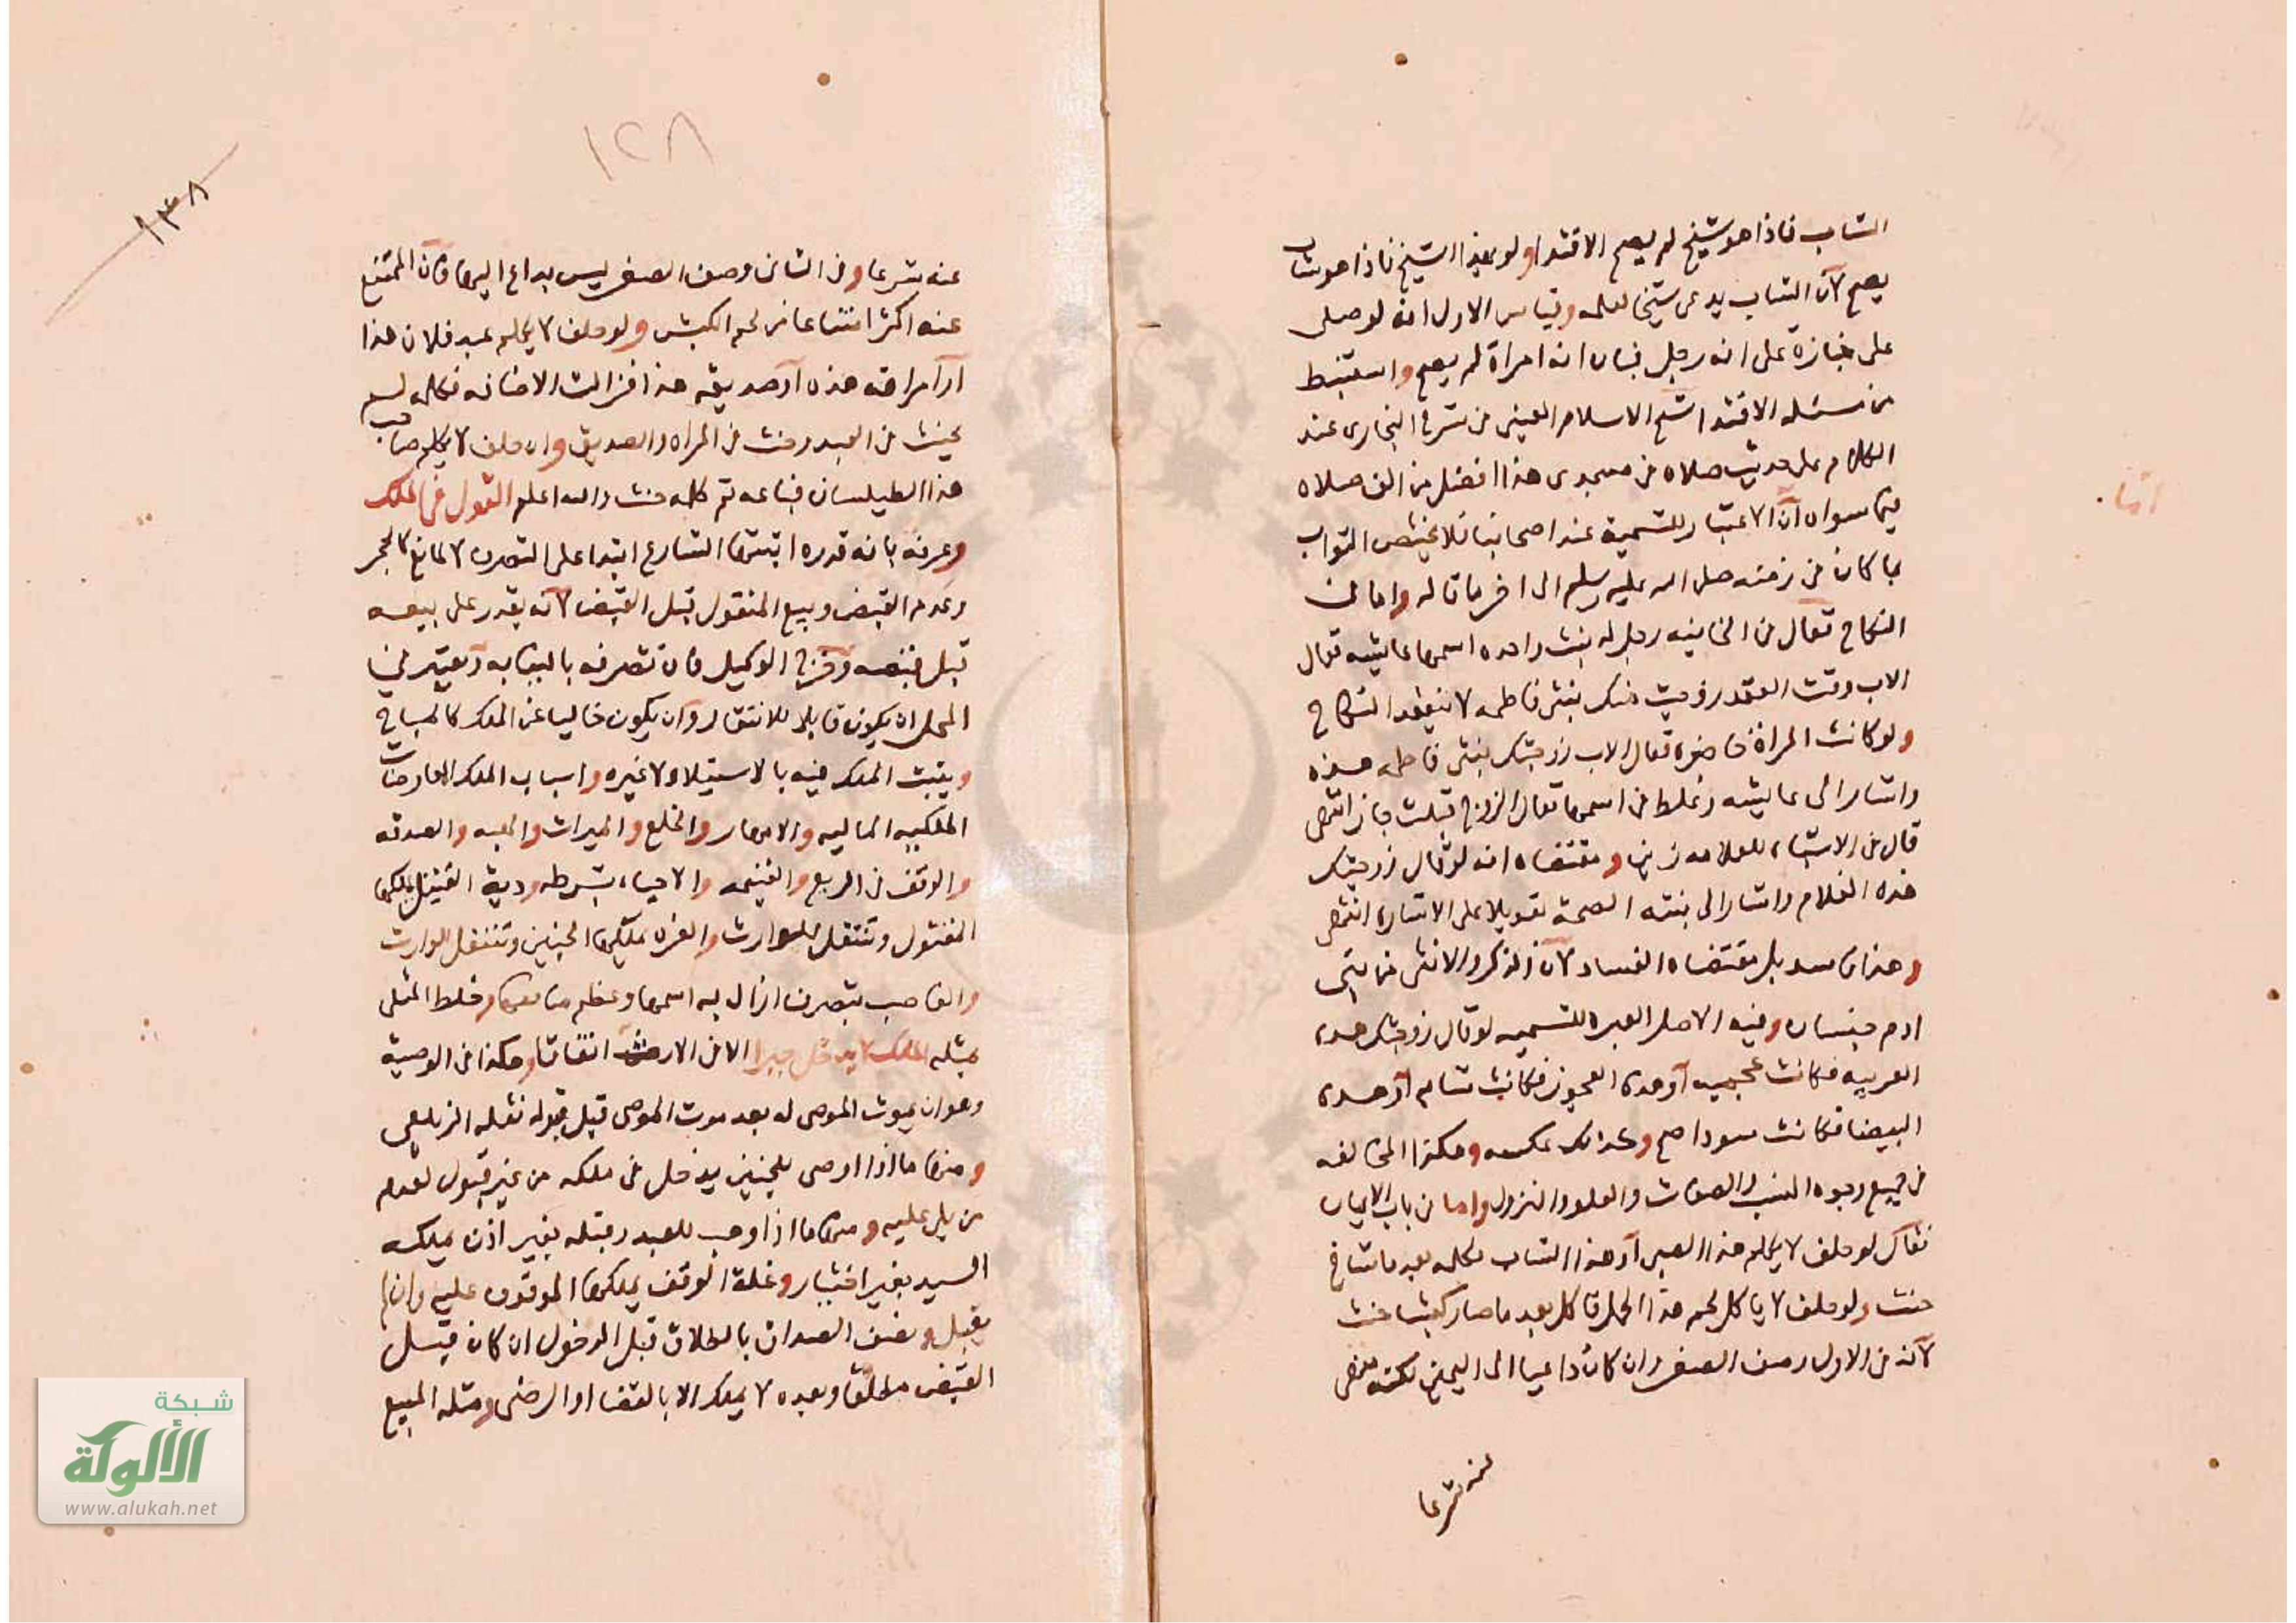 الشاب فاذا هو شيخ لم يصح الاقتدا ولو بهذا الشيخ فاذا هو شاب
يصح لان الشاب يدعى شيخا لعلمه وقياس الاول انه لو صلى
على جنازة على انه رجل فبان انه امراة لم يصح واستنبط
من مسئله الاقتدا شيخ الاسلام العيني في شرح البخارى عند
الكلام على حديث صلاه في مسجدى هذا افضل من الف صلاه
فيما سواه ان الاعتبار للتسمية عند اصحابنا فلا يختص الثواب
بما كان في زمنه صلى الله عليه وسلم الى اخر ما قاله واما في
النكاح فقال في الخانيه رجل له بنت واحده اسمها عايشه فقال
الاب وقت العقد زوجت منك بنتى فاطمه لا ينعقد النكاح
ولو كانت المراة حاضره فقال الاب زوجتك بنتى فاطمه هذه
واشار الى عايشه وغلط في اسمها فقال الزوج قبلت جاز انتهى
قال في الاشباه للعلامه زين ومقتضاه انه لو قال زوجتك
هذه الغلام واشار الى بنته الصحة تعويلا على الاشاره انتهى
وهذا فاسد بل مقتضاه الفساد لان الذكر والانثى من بنى
ادم جنسان وفيه الاصل العبره للتسميه لو قال زوجتك هده
العربيه فكانت عجميه او هده العجوز فكانت شابه او هده
البيضا فكانت سودا صح وكذلك عكسه وهكذا المخالفه
في جميع وجوه النسب والصفات والعلو والنزول واما في باب الايمان
فقال لو حلف لا يكلم هذا الصبى او هذا الشاب فكلمه بعد ما شاخ
حنث ولو حلف لا ياكل لحم هذا الحمل فاكل بعد ما صار كبشا حنث
لانه في الاول وصف الصغر وان كان داعيا الى اليمين لكنه منهى
عنه شرعا
اما
١٢٨
١٣٨
عنه شرعا وفى الثانى وصف الصغر ليس بداع اليها فان الممتنع
عنه اكثر امتناعا من لحم الكبش ولو حلف لا يكلم عبد فلان هذا
او امراته هذه او صديقه هذا فزالت الاضافه فكلمه لم
يحنث في العبد وحنث في المراه والصديق وان حلف لا يكلم صاحب
هذا الطيلسان فباعه ثم كلمه حنث والله اعلم القول في الملك
وعرفه بانه قدره اثبتها الشارع ابتدا على التصرف لا لمانع كالحجر
وعدم القبض وبيع المنقول قبل القبض لانه يقدر على بيعه
قبل قبضه وخرج الوكيل فان تصرفه بالنيابه ويعتبر في
المحل ان يكون قابلا للانتقال وان يكون خاليا عن الملك كالمباح
ويثبت الملك فيه بالاستيلاء لا غيره واسباب الملك المعاوضات
الماليه والامهار والخلع والميراث والهبه والصدقه
والوقف في الريع والغنيمه والاحياء بشرطه ودية القتيل يملكها
المقتول وتنتقل للوارث والغره يملكها الجنين وتنتقل للوارث
والغاصب بتصرف ازال به اسمها وعظم منافعها وخلط المثلى
بمثله الملك لا يدخل جبرا الا في الارث اتفاقا وهكذا في الوصية
وهو ان يموت الموصى له بعد موت الموصى قبل قبوله نقله الزيلعى
ومنها ما اذا اوصى للجنين يدخل في ملكه من غير قبول لعدم
من يلى عليه ومنها ما اذا وهب للعبد وقبله بغير اذن يملكه
السيد بغير اختيار وغلة الوقف يملكها الموقوف عليه وان لم
يقبل ونصف الصداق بالطلاق قبل الدخول ان كان قبل
القبض مطلقا وبعده لا يملك الا بالقضا او الرضى ومثله المبيع
شبكة
الألوكة
www.alukah.net